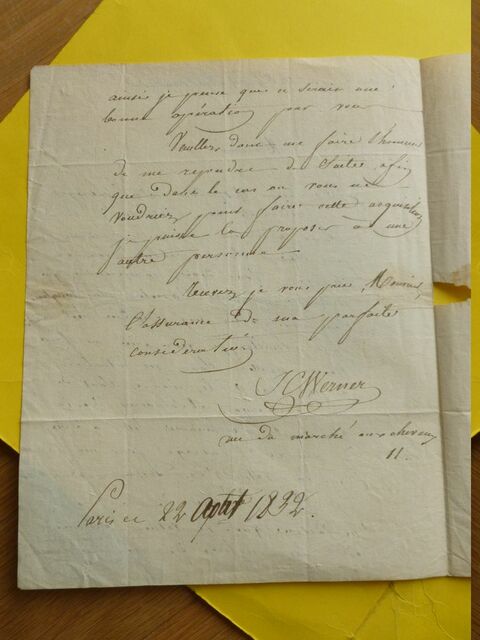 ainsi je pense que ce serait une
bonne opération pour vous
Veuillez donc me faire l'honneur
de me repondre de suite afin
que dans le cas ou vous ne
voudriez pas faire cette acquisition
je puisse la proposer a une
autre personne
Recevez je vous prie, Monsieur,
l'assurance de ma parfaite
considération
JC Werner
rue du marché aux chevaux
11.
Paris ce 22 Aout 1832.